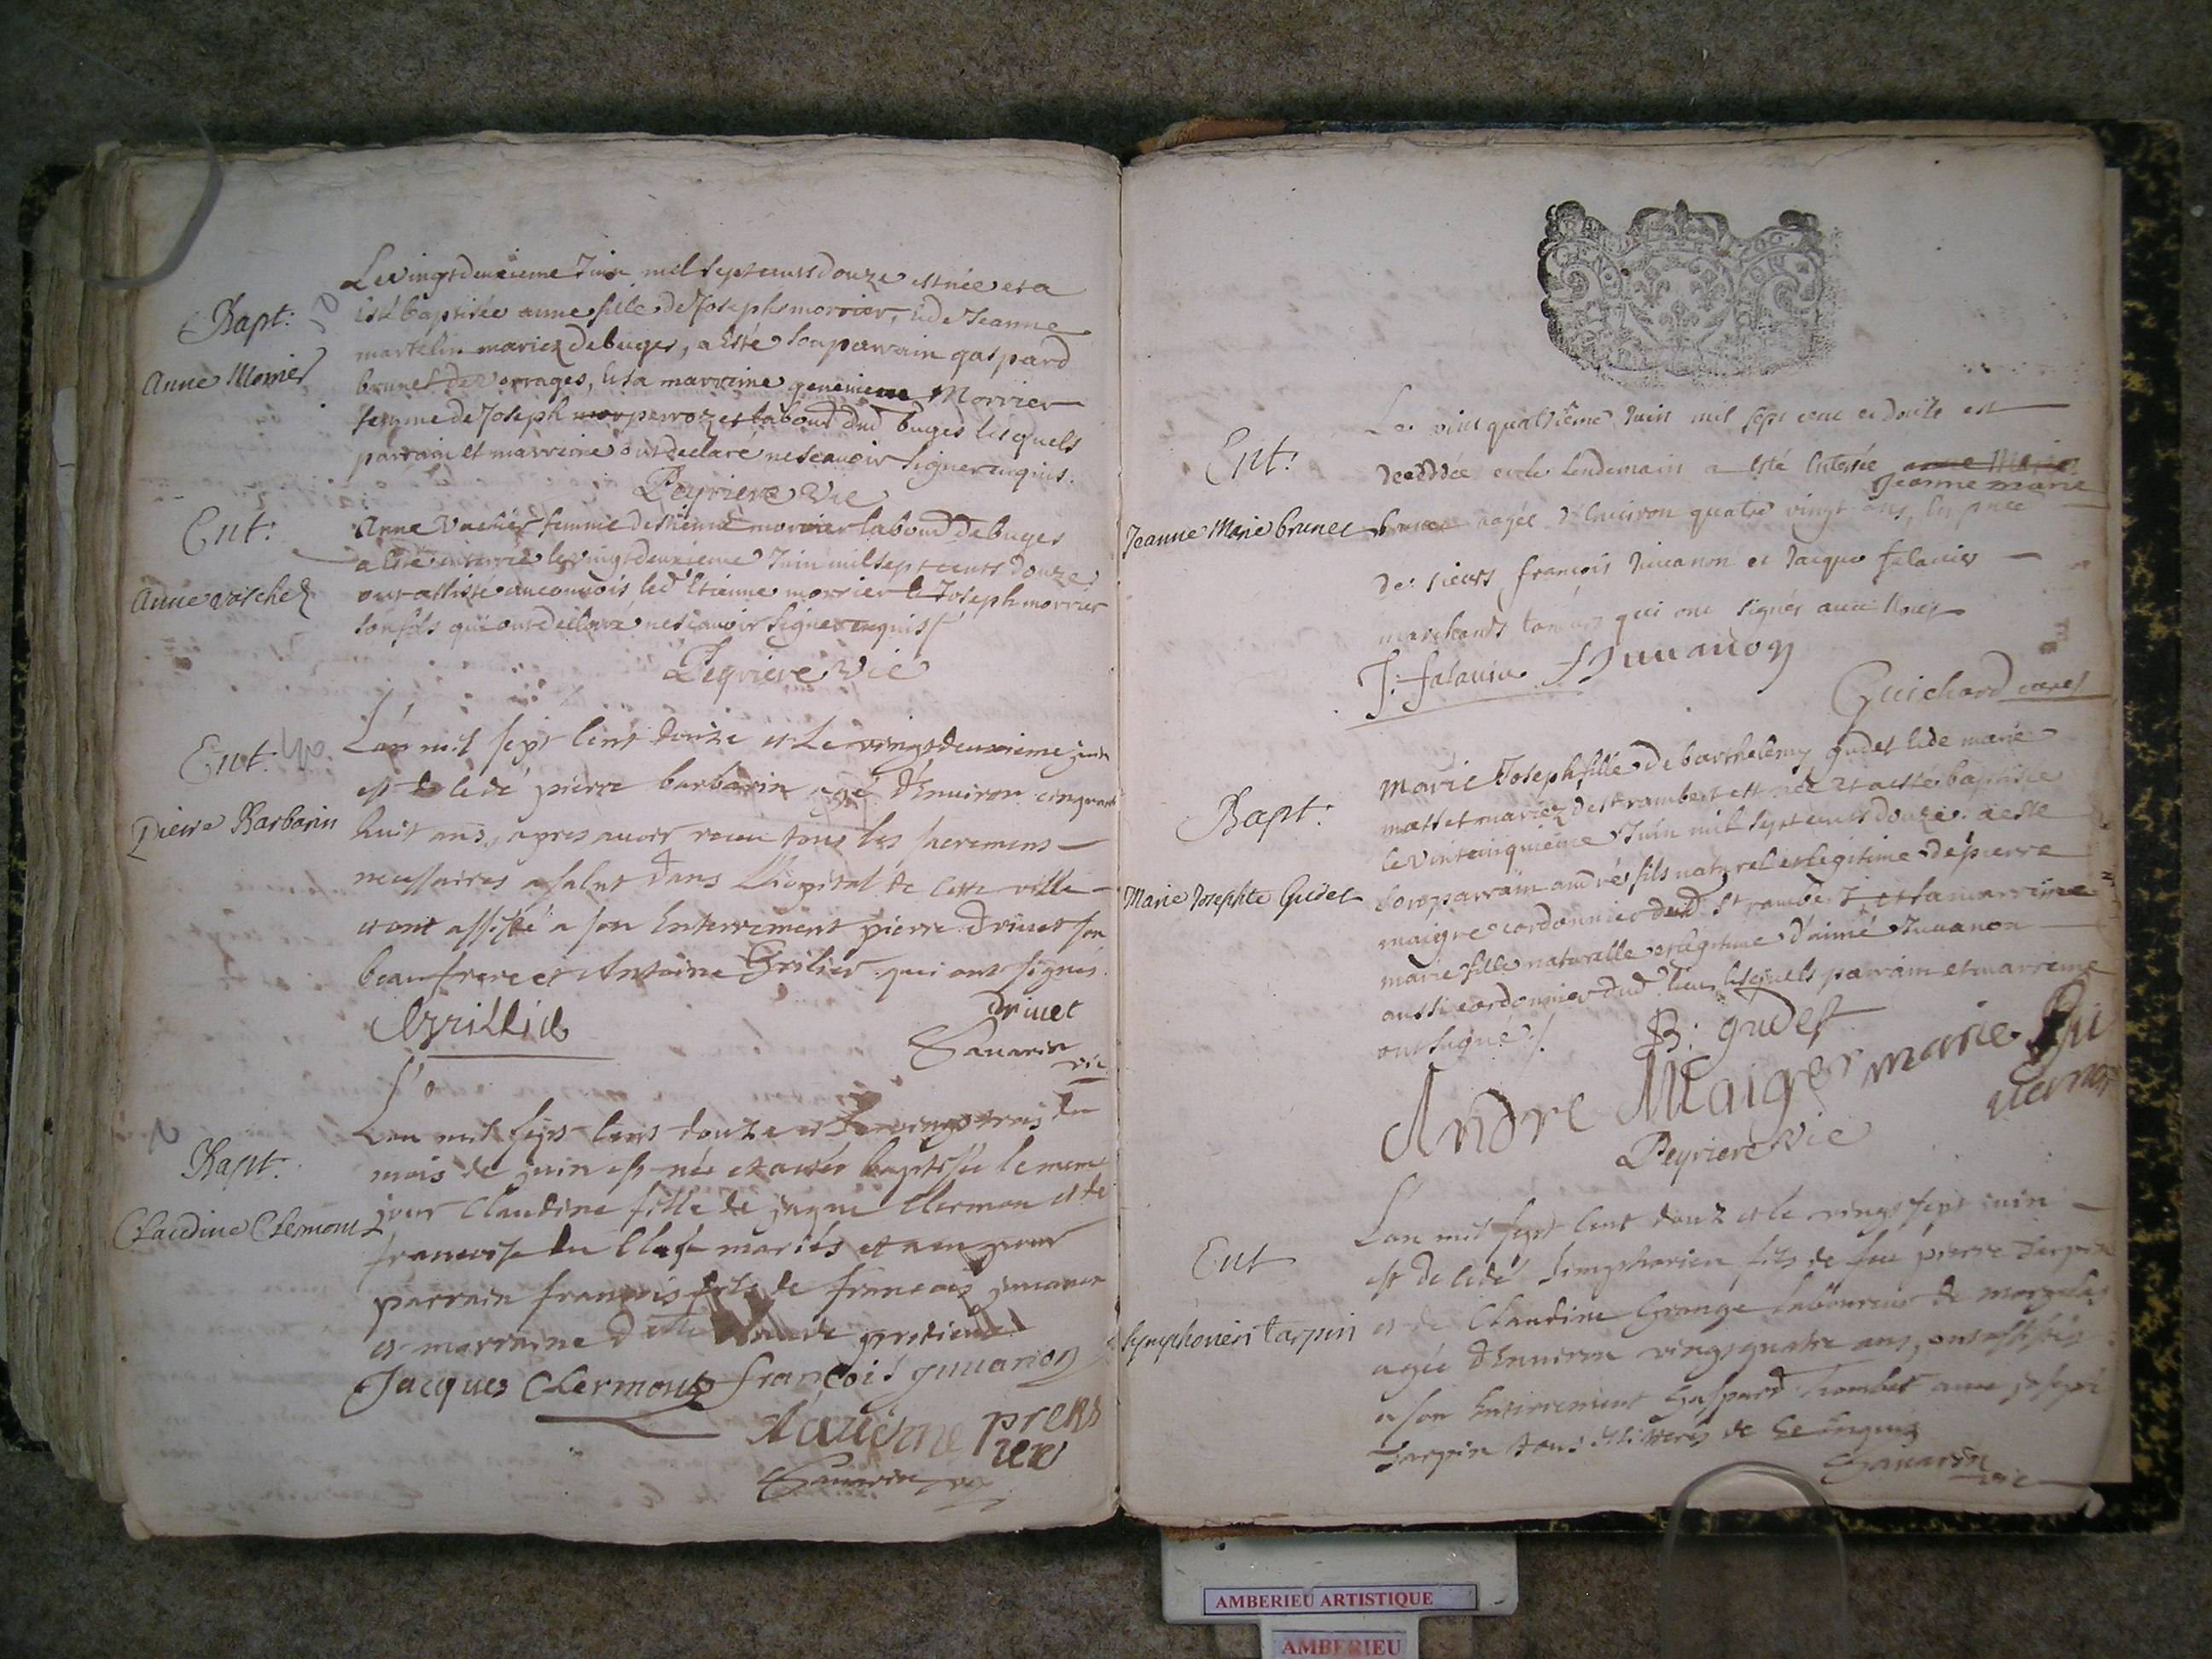 Bapt:
Anne Morrier
Le vingt deuxieme Juin mil sept cents douze est née et a
esté baptisée anne fille de Joseph morrier, et de Jeanne
martelin mariez de buges, a esté son parrain gaspard
brunet des orrages, et sa marreine genevieve Morrier
femme de Joseph perroz et labour dud buges lesquels
parrain et marreine ont declaré ne scavoir signer enquis.
Peyriere vic
Ent:
Anne vacher
Anne vacher femme destienne morrier labour de buges
a esté enterrée le vingt deuxieme Juin mil sept cents douze
ont assisté au convois led Etienne morrier et Joseph morrier
son fils qui ont declaré ne scavoir signer enquis
Peyriere vic
Ent:
Pierre Barbarin
L'an mil sept cent douze et le vingt deuxieme juin
est decedé pierre barbarin agé d'environ cinquante
huit ans, apres avoir receu tous les sacremens
necessaires a salut dans l'hopital de cette ville
et ont assisté a son enterrement pierre drivet son
beaufrere et Antoine Grilier qui ont signés
Grillié drivet
Savarin
vic
Bapt:
Claudine Clermont
L'an mil sept cens douze et le vingt trois du
mois de juin est née et a esté baptisée le meme
jour Claudine fille de jaque Clermon et de
francoise du mariés et a eu pour
parrain francois fils de francois juvanon
et marraine
Jacques Clermont françois juvanon
Savarin vic
Ent:
Jeanne Marie brunet
Le vint quatrième Juin mil sept cent et douze est
decédée et le lendemain a esté enterrée
Jeanne marie
brunet aagée d'environ quatre vingt ans, en pnce
des sieurs françois Juvanon et Jacque falavier
marchands qui ont signés avec Nous
J. falavier f Juvanon
Guichard curé
Bapt:
Marie Josephte Gudet
Marie Joseph fille de barthelemy gudet et de marie
mattet mariez de st rambert est née et a esté baptisée
le vint cinquieme Juin mil sept cents douze. a esté
son parrain andrés fils naturel et legitime de pierre
maigre cordonnier dud st rambert, et sa marreine
marie fille naturelle et legitime d'aimé Juvanon
aussi cordonnier dud lieu lesquels parrain et marreine
ont signé.
B: gudet
Andre Maiger marie Gui
uernon
Peyriere vic
Ent
Symphorien tarpin
L'an mil sept cent douz et le vingt sept juin
est decedé Simphorien fils de feu pierre tarpin
et de Claudine Grange laboureur de
agée d'environ vingt quatre ans, ont assistés
a son enterrement Gaspard avec joseph
tarpin tous de ce enquis
Savarin
vic
AMBERIEU ARTISTIQUE
AMBERIEU